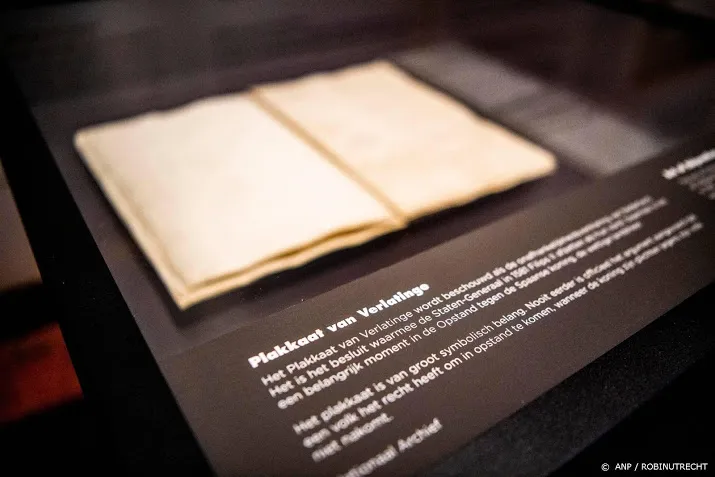 Plakkaat van Verlatinge
Het Plakkaat van Verlatinge wordt beschouwd als de onafhankelijkheidsverklaring van Nederland.
Het is het besluit waarmee de Staten-Generaal in 1581 Filips II
een belangrijk moment in de Opstand tegen de Spaanse koning, de wettige
Het plakkaat is van groot symbolisch belang. Nooit eerder is officieel het argument
een volk het recht heeft om in opstand te komen, wanneer de koning zijn plichten
niet nakomt.
Nationaal Archief
© ANP / ROBINUTRECHT